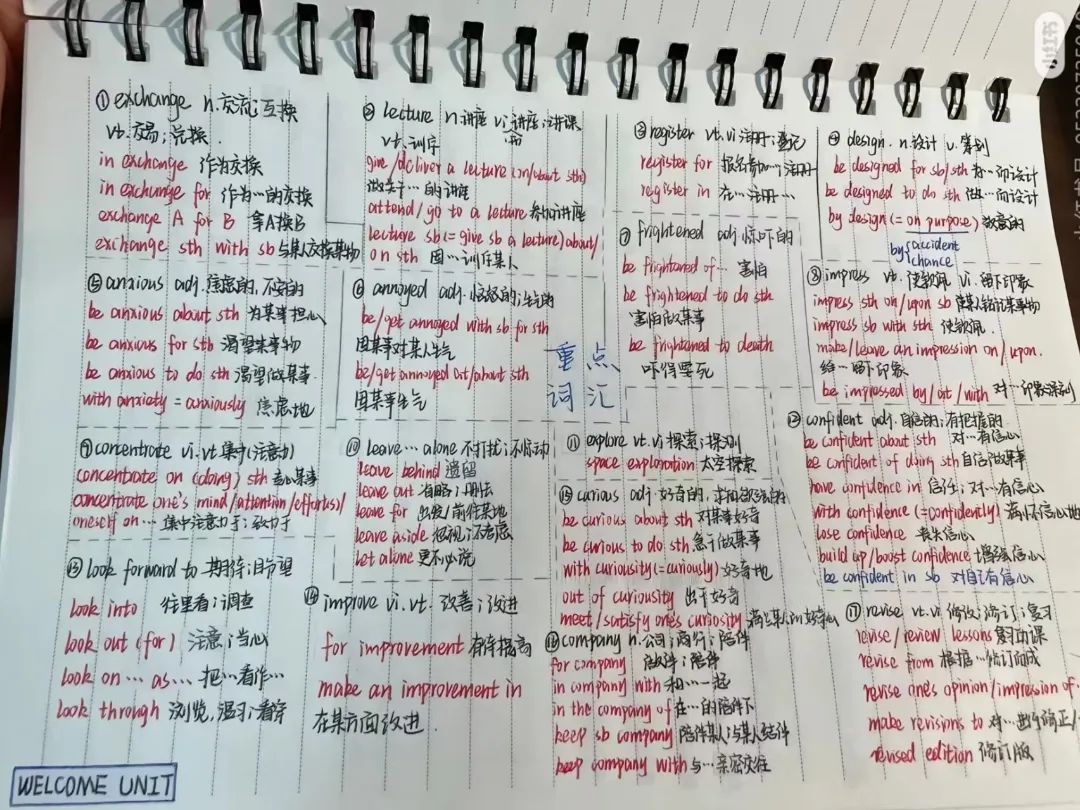 ① exchange n.交流;互换
vt.交易;兑换
in exchange 作为交换
in exchange for 作为…的交换
exchange A for B 拿A换B
exchange sth with sb 与某人交换某物
② lecture n.讲座 vi.讲座;讲课
vt.训斥
give/deliver a lecture (on/about sth)
做关于…的讲座
attend/go to a lecture 参加讲座
lecture sb (= give sb a lecture) about/
on sth 因…训斥某人
③ register vt.vi 注册;登记
register for 报名参加…注册
register in 在…注册…
④ design. n.设计 v.筹划
be designed for sb/sth 为…而设计
be designed to do sth 做…而设计
by design (= on purpose) 故意的
by{accident
chance
⑤ anxious adj.焦虑的,不安的
be anxious about sth 为某事担心
be anxious for sth 渴望某事物
be anxious to do sth 渴望做某事.
with anxiety = anxiously 焦虑地
⑥ annoyed adj.恼怒的;生气的
be/get annoyed with sb for sth
因某事对某人生气
be/get annoyed at/about sth
因某事生气
⑦ frightened adj.惊吓的
be frightened of… 害怕
be frightened to do sth
害怕做某事
be frightened to death
吓得要死
⑧ impress vt. 使钦佩 vi.留下印象
impress sth on/upon sb 使某人铭记某事物
impress sb with sth 使钦佩.
make/leave an impression on/upon.
给…留下印象
be impressed by/at/with 对…印象深刻
重点
词汇
⑨ concentrate vi.vt.集中(注意力)
concentrate on (doing) sth 专心某事
concentrate one's mind/attention/effort(s)/
oneself on… 集中注意力于;致力于
⑩ leave… alone 不打扰;不惊动
leave behind 遗留
leave out 省略;删去
leave for 出发/前往某地
leave aside 忽视;不考虑
let alone 更不必说
⑪ explore vt.vi 探索;探测
space exploration 太空探索
⑫ confident adj.自信的;有把握的
be confident about sth 对…有信心
be confident of doing sth 自信做某事
have confidence in 信任;对…有信心
with confidence (=confidently) 满怀信心地
lose confidence 丧失信心
build up/boost confidence 增强信心
be confident in sb 对自己有信心
⑬ look forward to 期待;盼望
look into 往里看;调查
look out (for) 注意;当心
look on… as… 把…看作…
look through 浏览,温习;看穿
⑭ improve vi.vt. 改善;改进
for improvement 有待提高
make an improvement in
在某方面改进.
⑮ curious adj.好奇的,求知欲强的
be curious about sth 对某事好奇
be curious to do sth 急于做某事
with curiosity (= curiously) 好奇地
out of curiosity 出于好奇
meet/satisfy one's curiosity 满足某人的好奇心
⑯ company n.公司;商行;陪伴
for company 做伴;陪伴
in company with 和…一起
in the company of 在…的陪伴下
keep sb company 陪伴某人;与某人结伴
keep company with 与…亲密交往
⑰ revise vt.vi 修改;修订;复习
revise/review lessons 复习功课
revise from 根据…修订而成
revise one's opinion/impression of
make revisions to 对…进行修正/
revised edition 修订版
WELCOME UNIT
小红书